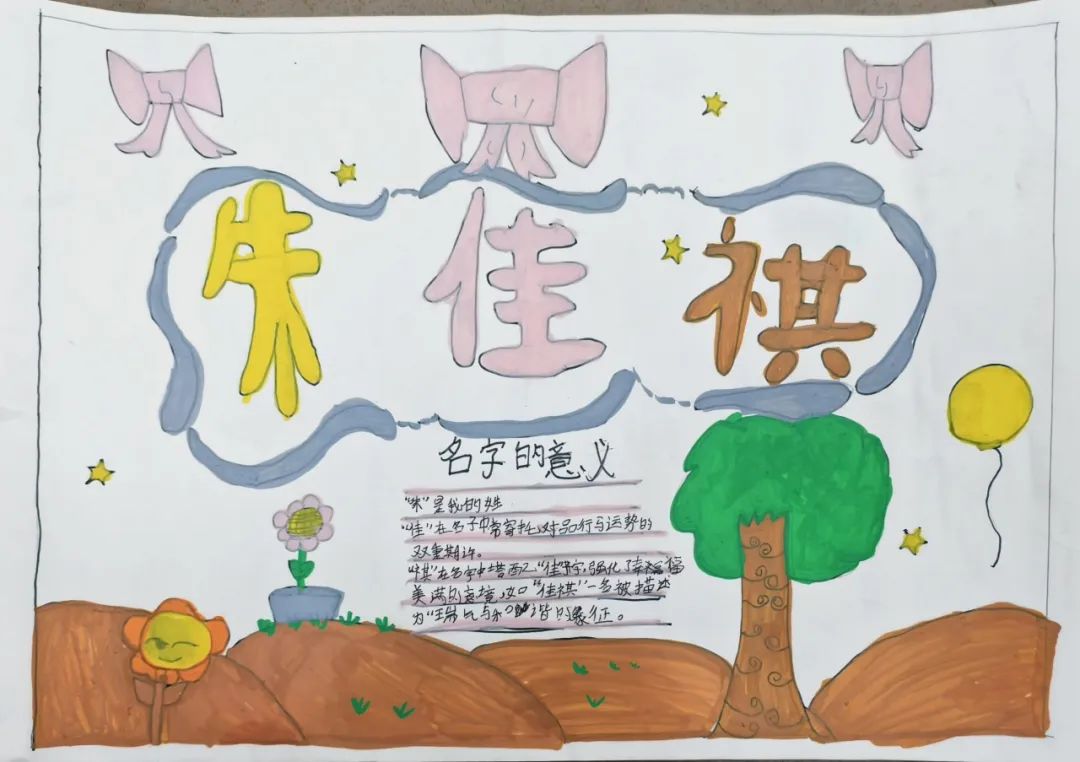 朱佳祺
名字的意义
"朱"是我的姓
"佳"在名子中常寄托对品行与运势的
双重期许。
"祺"在名字中搭配"佳"字,强化了幸福
美满的意境,如"佳祺"一名被描述
为"瑞气与和谐的象征。